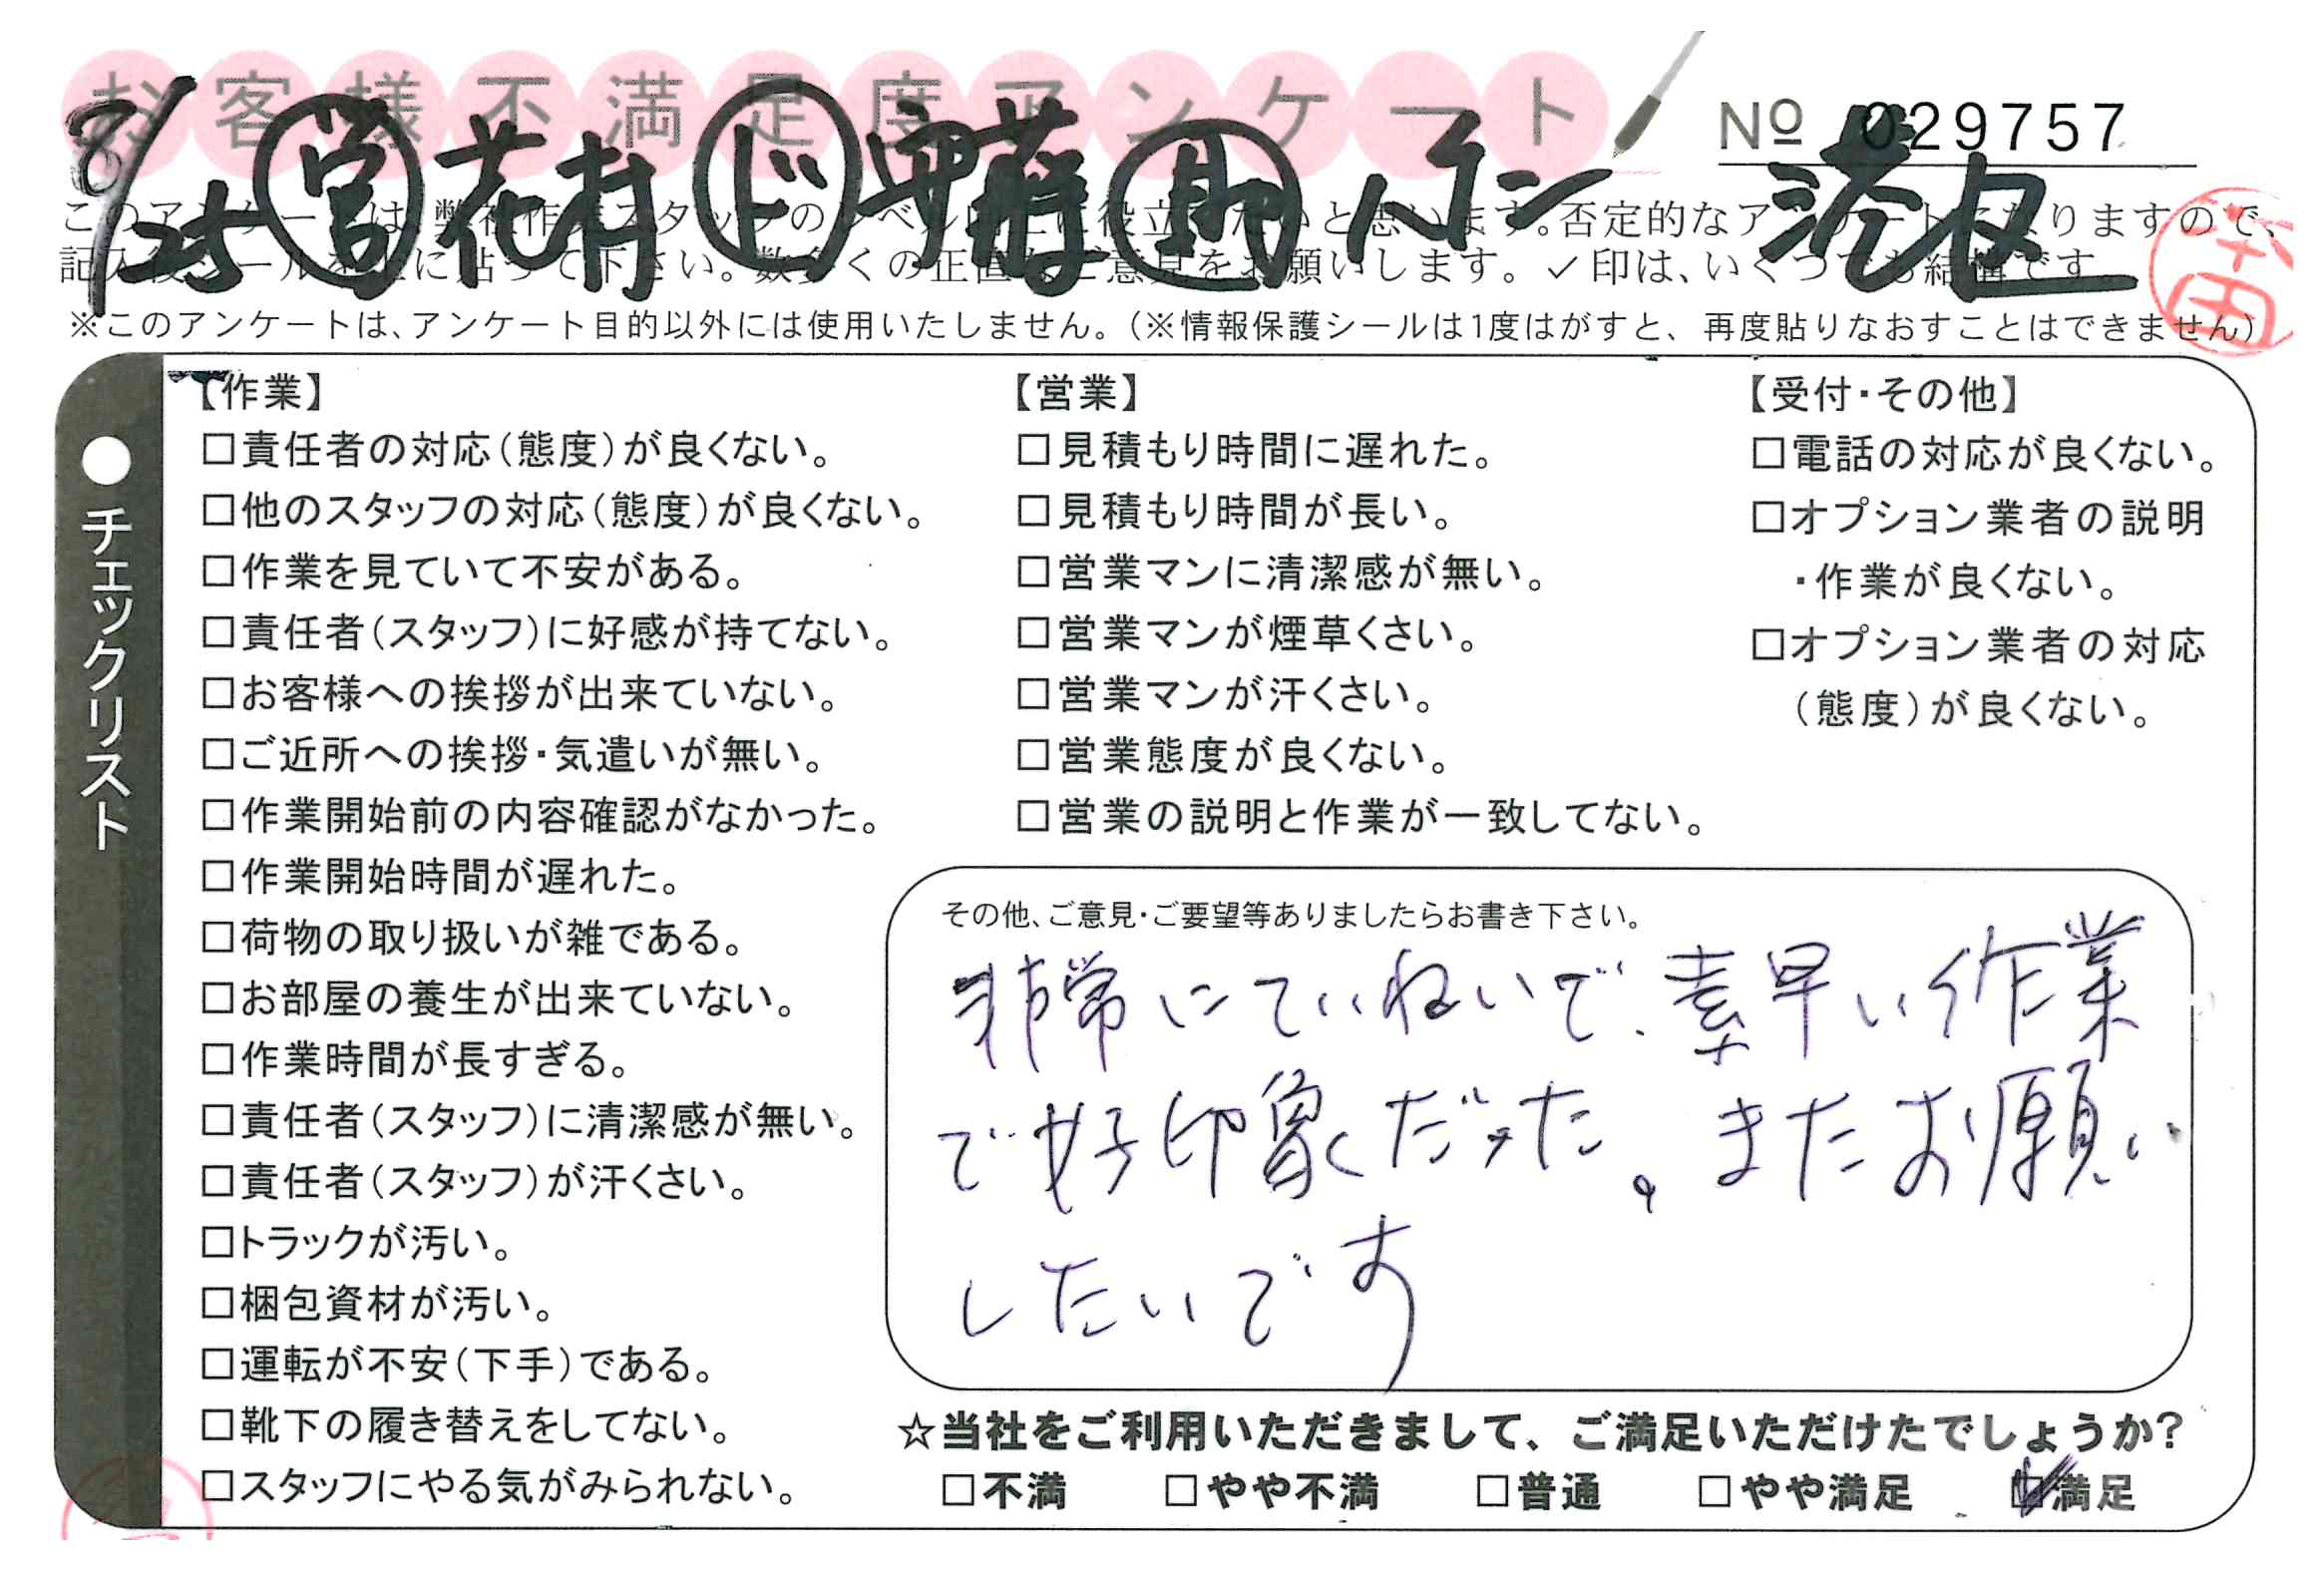 お客様不満足度アンケート
№ 029757
8/25 営 花村 ド 安藤 助 港区
このアンケートは、弊社作業スタッフのレベル向上に役立てたいと思います。否定的なアンケートになりますので、
記入後シールを上に貼って下さい。数多くの正直なご意見をお願いします。✓印は、いくつでも結構です。
※このアンケートは、アンケート目的以外には使用いたしません。（※情報保護シールは1度はがすと、再度貼りなおすことはできません）
●チェックリスト
【作業】
□責任者の対応（態度）が良くない。
□他のスタッフの対応（態度）が良くない。
□作業を見ていて不安がある。
□責任者（スタッフ）に好感が持てない。
□お客様への挨拶が出来ていない。
□ご近所への挨拶・気遣いが無い。
□作業開始前の内容確認がなかった。
□作業開始時間が遅れた。
□荷物の取り扱いが雑である。
□お部屋の養生が出来ていない。
□作業時間が長すぎる。
□責任者（スタッフ）に清潔感が無い。
□責任者（スタッフ）が汗くさい。
□トラックが汚い。
□梱包資材が汚い。
□運転が不安（下手）である。
□靴下の履き替えをしてない。
□スタッフにやる気がみられない。
【営業】
□見積もり時間に遅れた。
□見積もり時間が長い。
□営業マンに清潔感が無い。
□営業マンが煙草くさい。
□営業マンが汗くさい。
□営業態度が良くない。
□営業の説明と作業が一致してない。
【受付・その他】
□電話の対応が良くない。
□オプション業者の説明
・作業が良くない。
□オプション業者の対応
（態度）が良くない。
その他、ご意見・ご要望等ありましたらお書き下さい。
非常にていねいで、素早い作業
で好印象だった。またお願い
したいです
☆当社をご利用いただきまして、ご満足いただけたでしょうか?
□不満 □やや不満 □普通 □やや満足 ☑満足